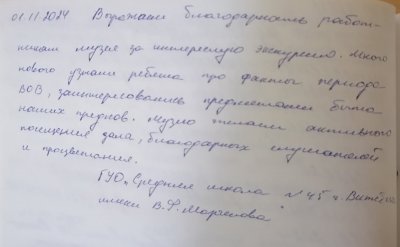 01.11.2024 Выражаем благодарность работ-
никам музея за интересную экскурсию. Много
нового узнали ребята про факты периода
ВОВ, заинтересовались предметами быта
наших предков. Музею желаем активного
посещения зала, благодарных слушателей
и процветания.
ГУО "Средняя школа №45 г. Витебска
имени В.Ф. Маргелова"